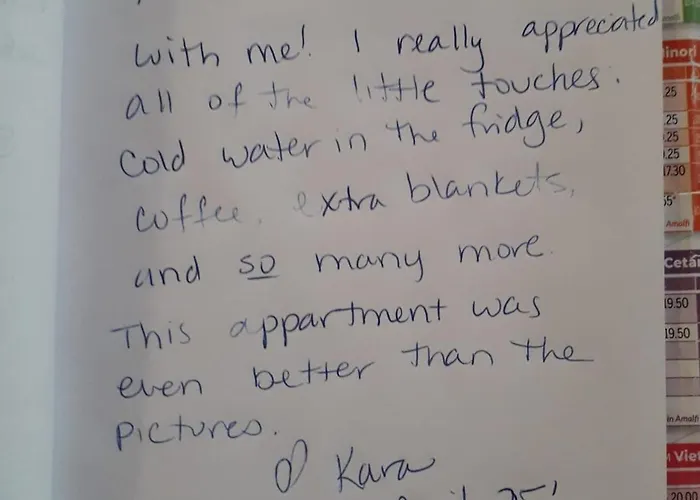 with me! I really appreciated
all of the little touches.
Cold water in the fridge,
coffee, extra blankets,
and so many more.
This appartment was
even better than the
pictures.
Kara
25'
inori
.25
.25
.25
.25
17.30
Amalfi
Cetar
19.50
19.50
in Amalfi
Viet
20.00